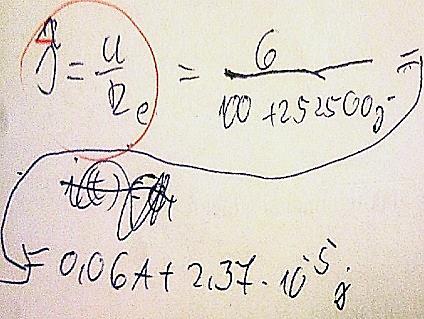 J = U/Re = 6/(100 + 252500j) =
= 0,06A + 2,37 · 10⁻⁵ j